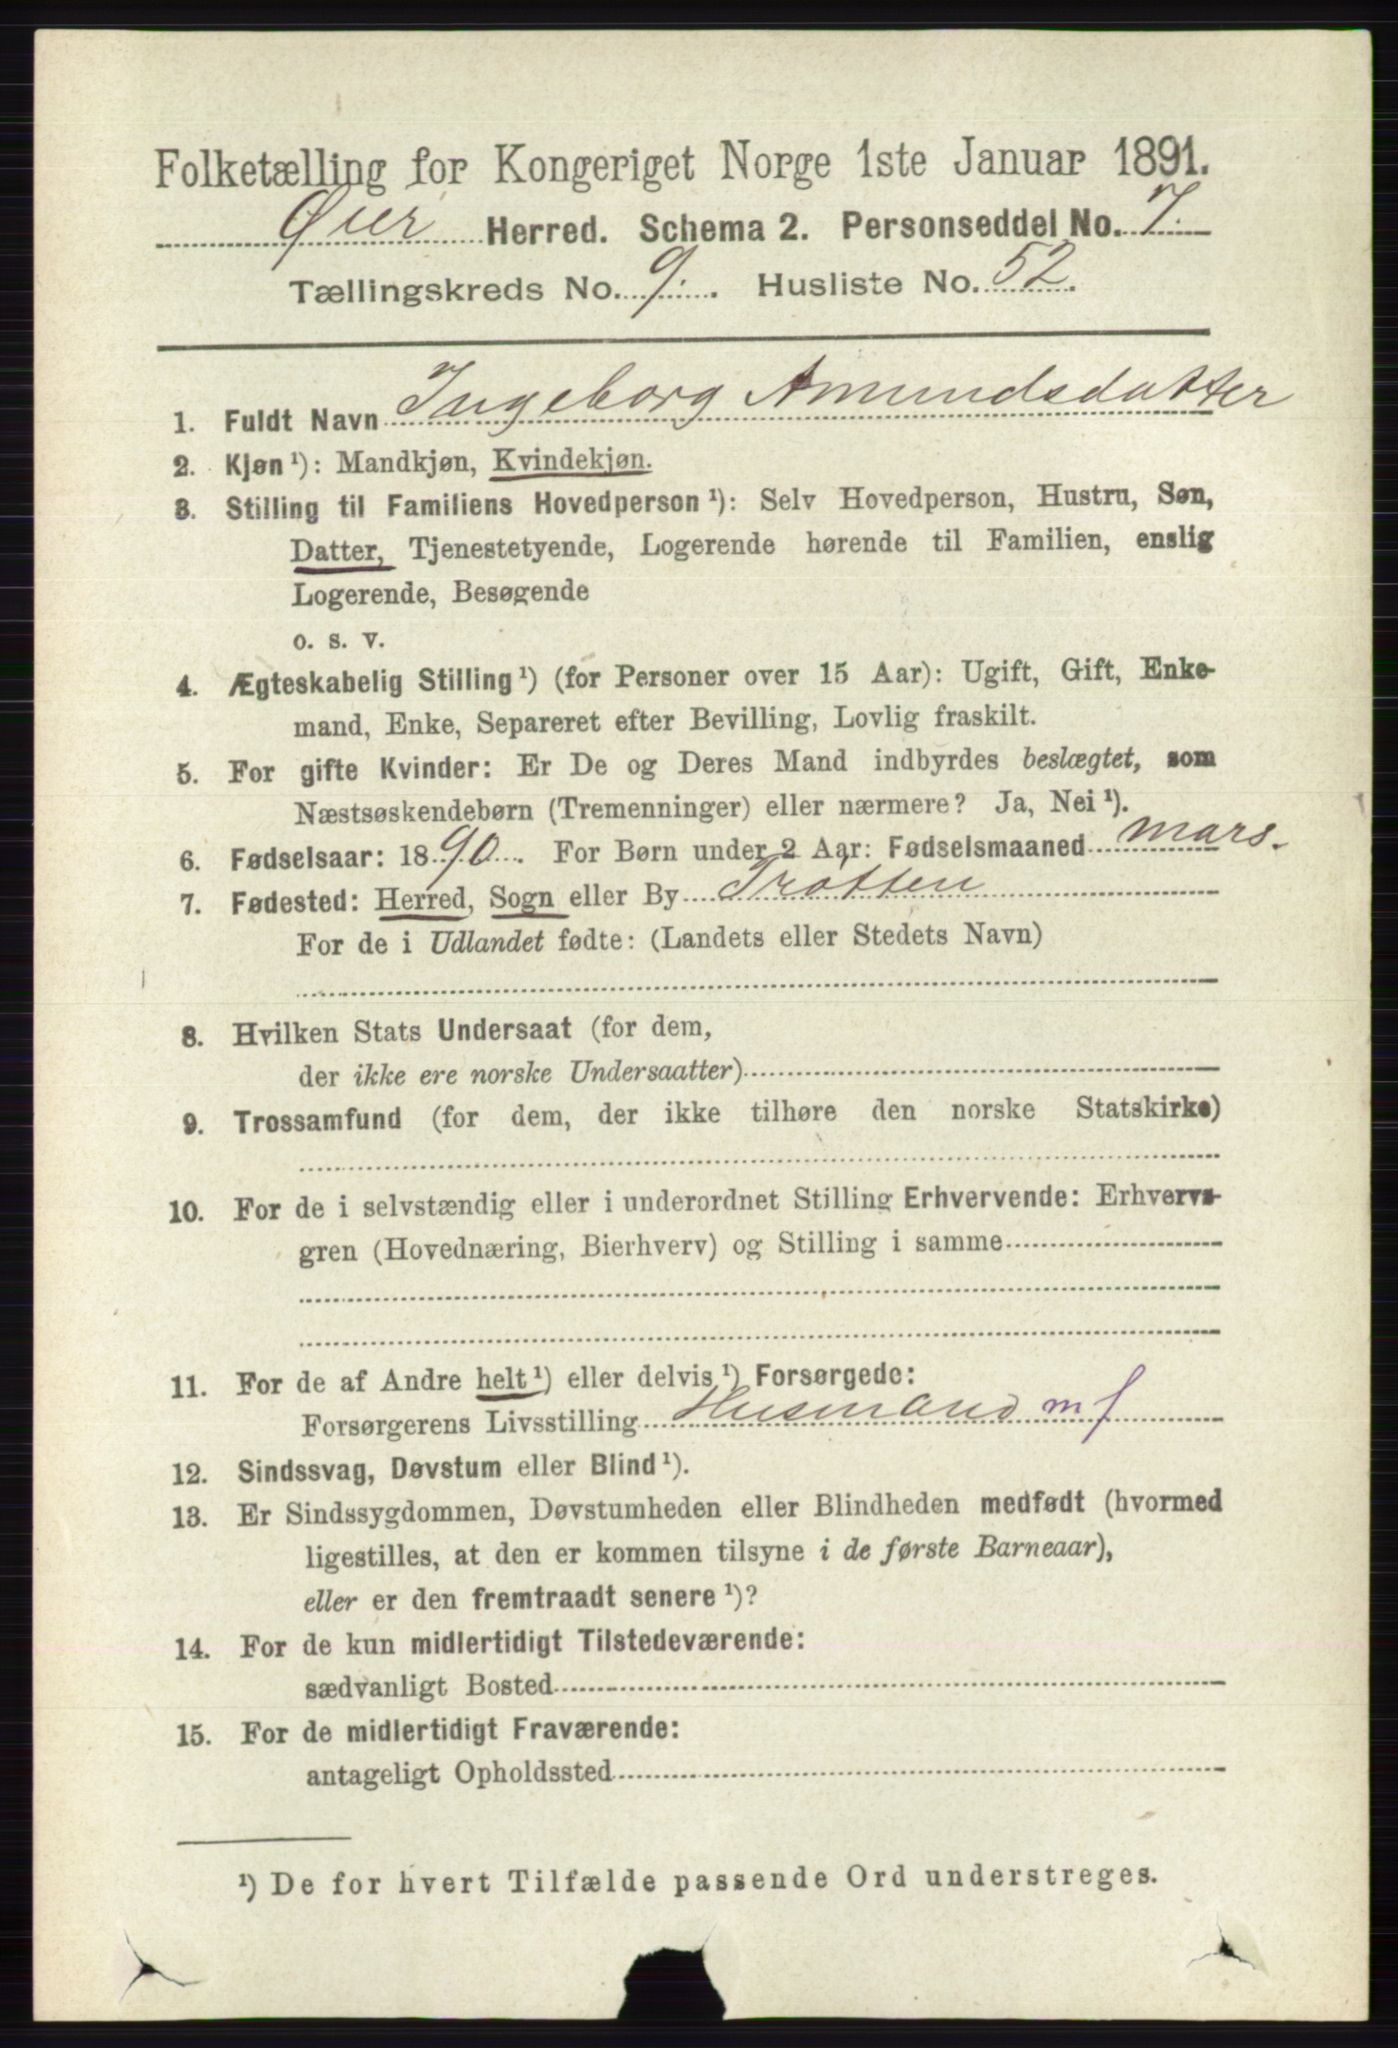 Folketælling for Kongeriget Norge 1ste Januar 1891.
Øier Herred. Schema 2. Personseddel No. 7.
Tællingskreds No. 9. Husliste No. 52.
1. Fuldt Navn Ingeborg Amundsdatter
2. Kjøn ¹): Mandkjøn, Kvindekjøn.
3. Stilling til Familiens Hovedperson ¹): Selv Hovedperson, Hustru, Søn,
Datter, Tjenestetyende, Logerende hørende til Familien, enslig
Logerende, Besøgende
o. s. v.
4. Ægteskabelig Stilling ¹) (for Personer over 15 Aar): Ugift, Gift, Enke-
mand, Enke, Separeret efter Bevilling, Lovlig fraskilt.
5. For gifte Kvinder: Er De og Deres Mand indbyrdes beslægtet, som
Næstsøskendebørn (Tremenninger) eller nærmere? Ja, Nei ¹).
6. Fødselsaar: 1890. For Børn under 2 Aar: Fødselsmaaned mars.
7. Fødested: Herred, Sogn eller By Trotten
For de i Udlandet fødte: (Landets eller Stedets Navn)
8. Hvilken Stats Undersaat (for dem,
der ikke ere norske Undersaatter)
9. Trossamfund (for dem, der ikke tilhøre den norske Statskirke)
10. For de i selvstændig eller i underordnet Stilling Erhvervende: Erhvervs-
gren (Hovednæring, Bierhverv) og Stilling i samme
11. For de af Andre helt ¹) eller delvis ¹) Forsørgede:
Forsørgerens Livsstilling Husmand m f
12. Sindssvag, Døvstum eller Blind ¹).
13. Er Sindssygdommen, Døvstumheden eller Blindheden medfødt (hvormed
ligestilles, at den er kommen tilsyne i de første Barneaar),
eller er den fremtraadt senere ¹)?
14. For de kun midlertidigt Tilstedeværende:
sædvanligt Bosted
15. For de midlertidigt Fraværende:
antageligt Opholdssted
¹) De for hvert Tilfælde passende Ord understreges.